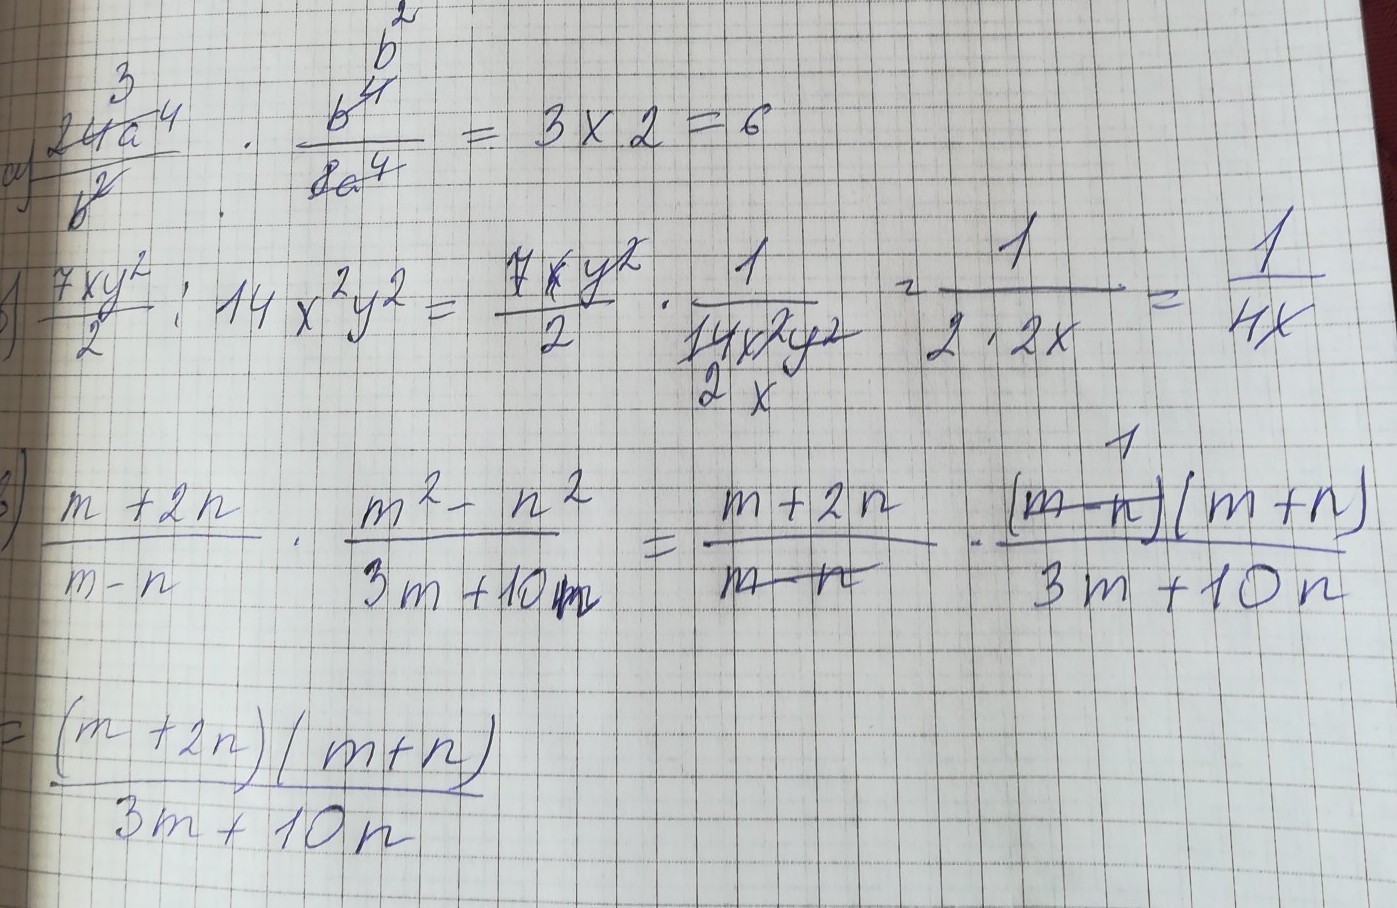 а) 24a⁴/b² · b⁴/8a⁴ = 3 x 2 = 6
3 b²
б) 7xy²/2 : 14x²y² = 7xy²/2 · 1/14x²y² = 1/2·2x = 1/4x
2 x
в) m+2n/m-n · m²-n²/3m+10n = m+2n/m-n · (m-n)(m+n)/3m+10n
1
= (m+2n)(m+n)/3m+10n